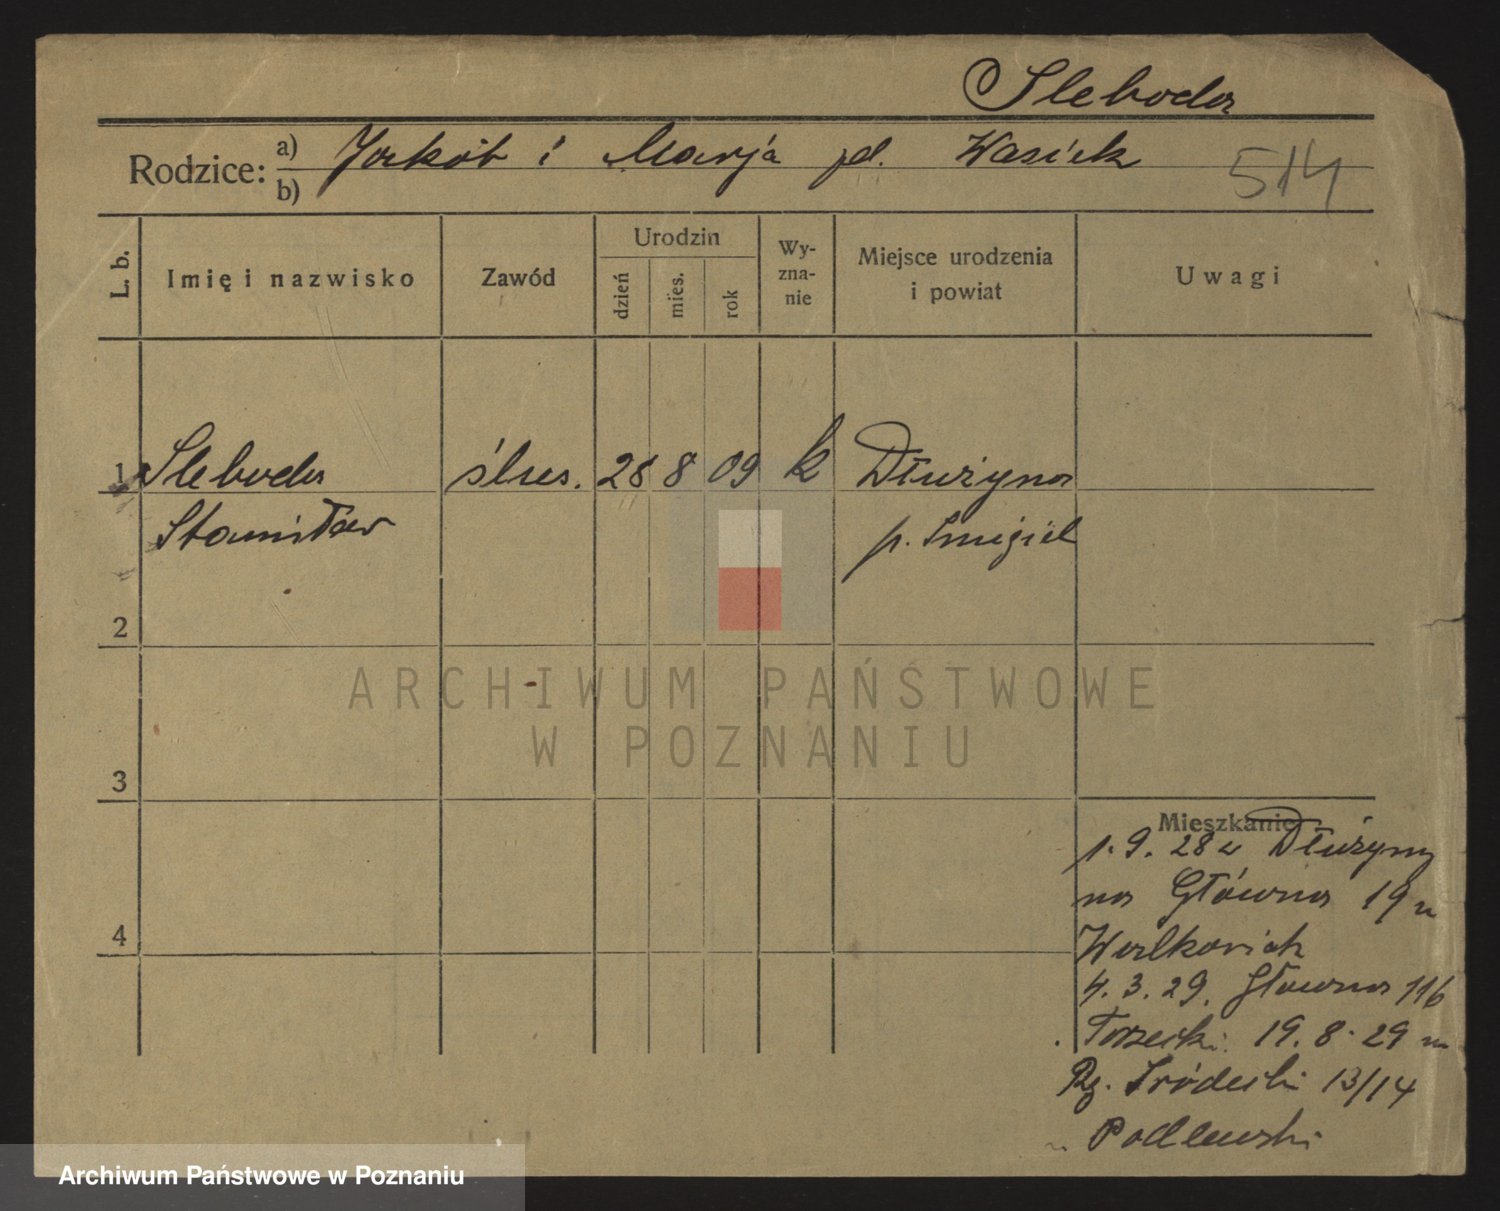 Sleboda
Rodzice: a) Jakób i Marja zd. Wasiek
b)
514
L. b.
Imię i nazwisko
Zawód
Urodzin
dzień
mies.
rok
Wy-
zna-
nie
Miejsce urodzenia
i powiat
Uwagi
1 Sleboda ślus. 28 8 09 k Dłużyna
Stanisław p. Śmigiel
2
3
4
Mieszkanie
1.9.28 z Dłużyny
na Główna 19 u
Walkowiak
4.3.29. Główna 116
Torzecki 19.8.29 na
Rg. Śródecki 13/14
u Podlewski
ARCHIWUM PAŃSTWOWE
W POZNANIU
Archiwum Państwowe w Poznaniu